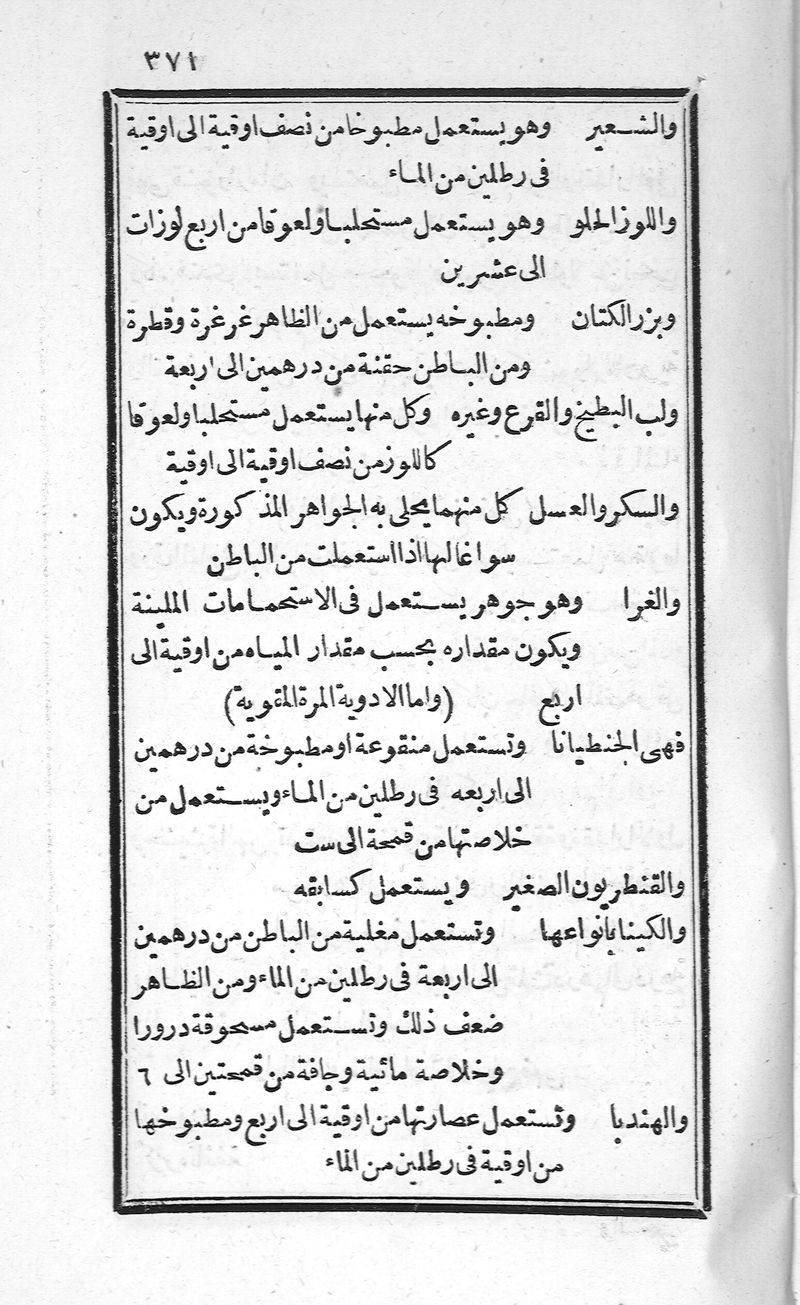 ٣٧١
والشعير وهو يستعمل مطبوخا من نصف اوقية الى اوقية
فى رطلين من الماء
واللوز الحلو وهو يستعمل مستحلبا ولعوقا من اربع لوزات
الى عشرين
وبزر الكتان ومطبوخه يستعمل من الظاهر غرغرة وقطرة
ومن الباطن حقنة من درهمين الى اربعة
ولب البطيخ والقرع وغيره وكل منها يستعمل مستحلبا ولعوقا
كاللوز من نصف اوقية الى اوقية
والسكر والعسل كل منهما يحلى به الجواهر المذكورة ويكون
سواغالها اذا استعملت من الباطن
والغرا وهو جوهر يستعمل فى الاستحمامات الملينة
ويكون مقداره بحسب مقدار المياه من اوقية الى
اربع (واما الادوية المرة المقوية)
فهى الجنطيانا وتستعمل منقوعة او مطبوخة من درهمين
الى اربعه فى رطلين من الماء ويستعمل من
خلاصتها من قمحة الى ست
والقنطريون الصغير ويستعمل كسابقه
والكينا بأنواعها وتستعمل مغلية من الباطن من درهمين
الى اربعة فى رطلين من الماء ومن الظاهر
ضعف ذلك وتستعمل مسحوقة درورا
وخلاصة مائية وجافة من قمحتين الى ٦
والهندبا وتستعمل عصارتها من اوقية الى اربع ومطبوخها
من اوقية فى رطلين من الماء